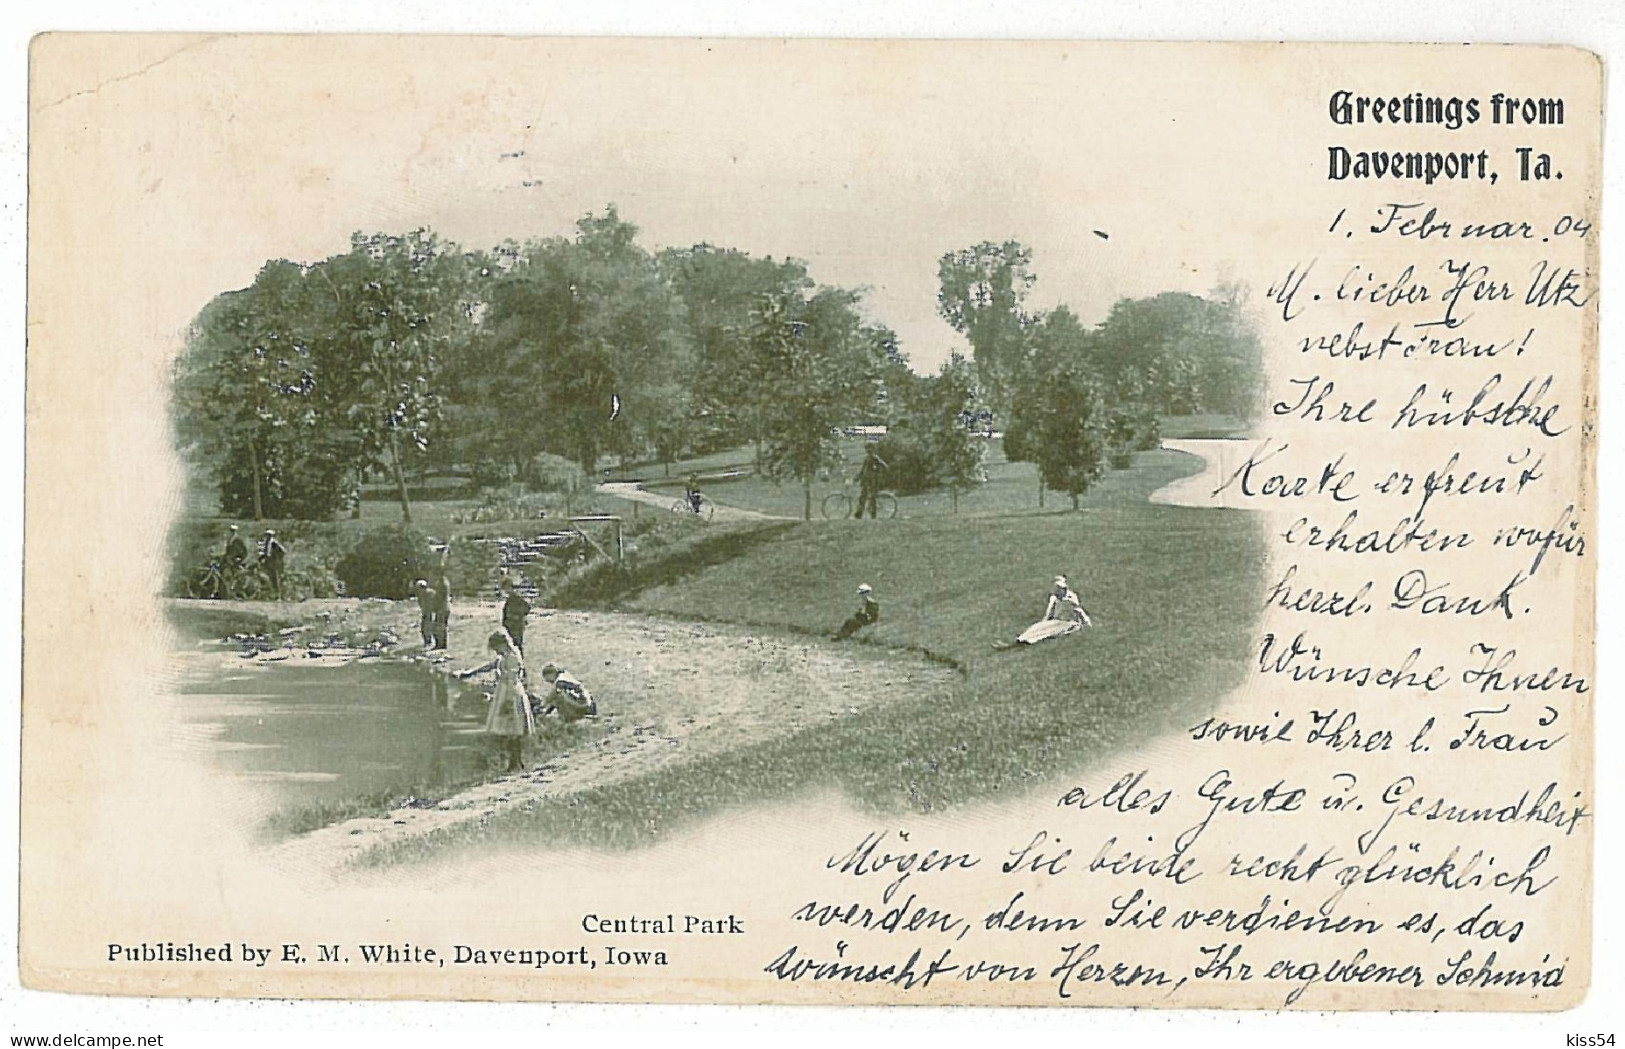 Greetings from
Davenport, Ia.
1. Februar. 04
M. lieber Herr Utz
nebst Frau!
Ihre hübsche
Karte erfreut
erhalten wofür
herzl. Dank.
Wünsche Ihnen
sowie Ihrer l. Frau
alles Gute u. Gesundheit
Mögen Sie beide recht glücklich
werden, denn Sie verdienen es, das
wünscht von Herzen, Ihr ergebener Schmid
Central Park
Published by E. M. White, Davenport, Iowa
delcampe.net
kiss54